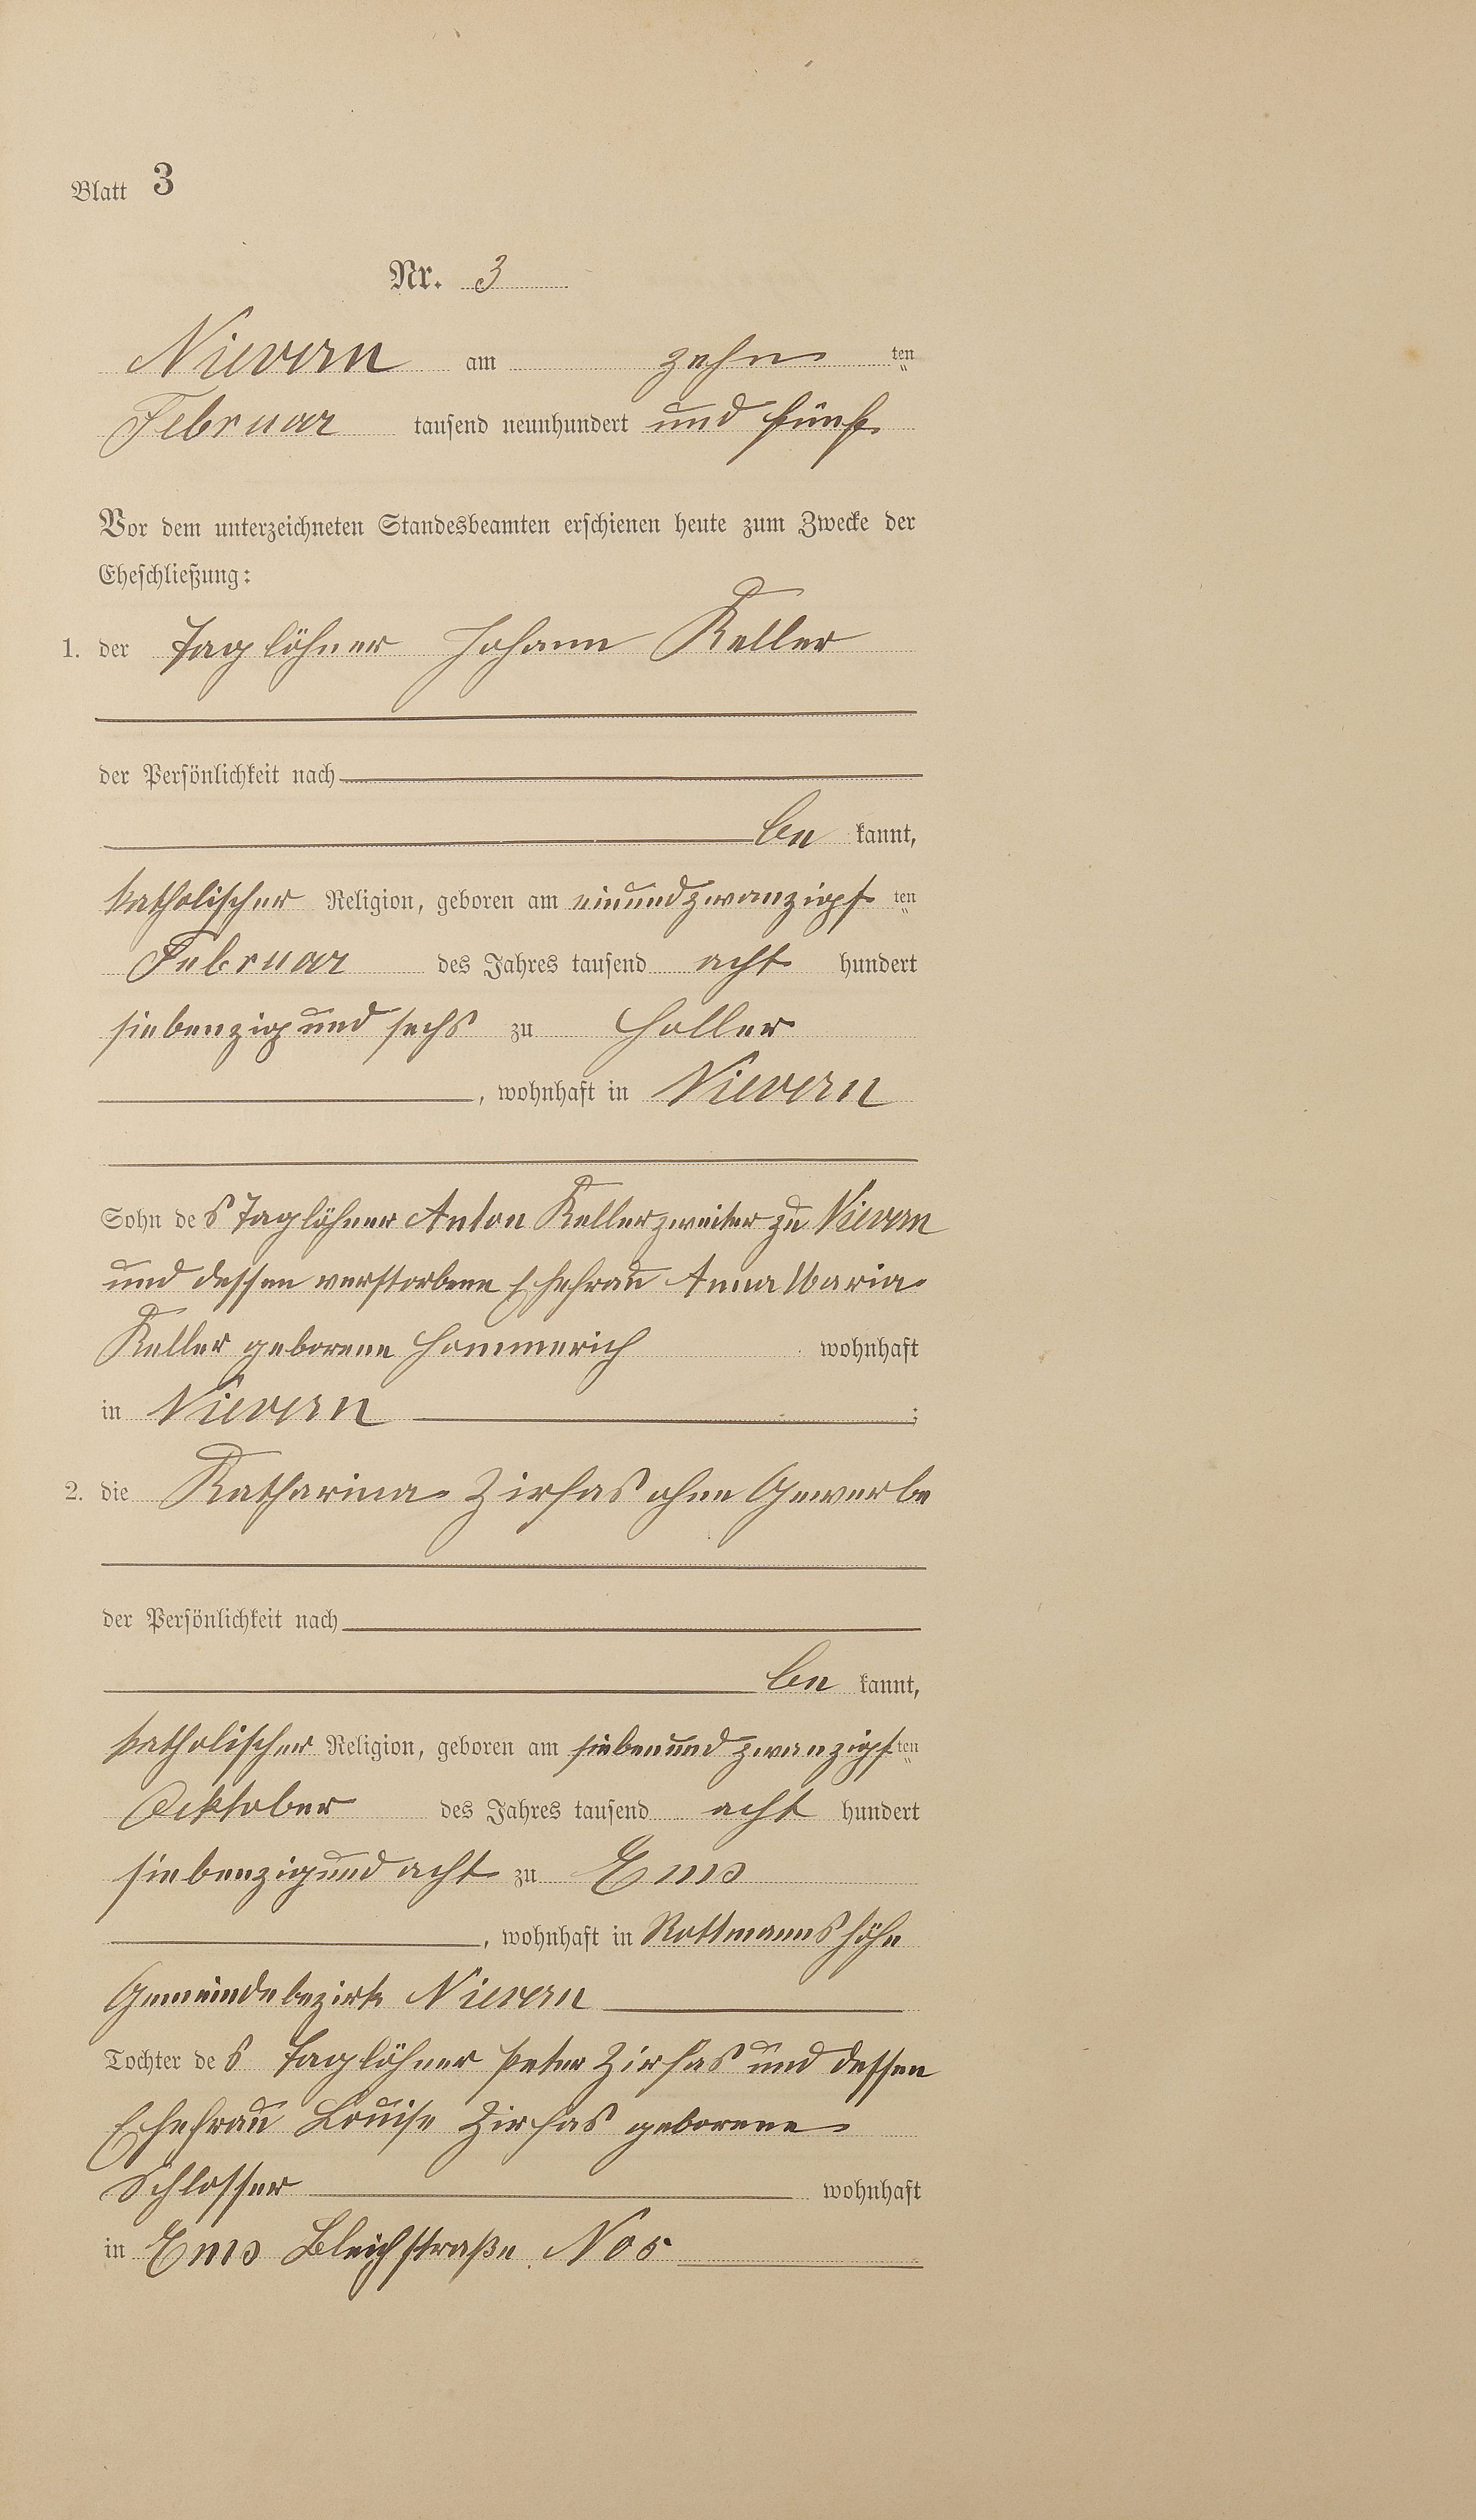 Blatt 3
Nr. 3
Nievern am zehn ten
Februar tausend neunhundert und fünf
Vor dem unterzeichneten Standesbeamten erschienen heute zum Zwecke der
Eheschließung:
1. der Taglöhner Johann Keller
der Persönlichkeit nach
be kannt,
katholischer Religion, geboren am einundzwanzigst ten
Februar des Jahres tausend acht hundert
siebenzig und sechs zu Holler
, wohnhaft in Nievern
Sohn des Taglöhner Anton Keller zweiter zu Nievern
und dessen verstorbene Ehefrau Anna Maria
Keller geborene Hommerich wohnhaft
in Nievern ;
2. die Katharina Zirfas ohne Gewerbe
der Persönlichkeit nach
be kannt,
katholischer Religion, geboren am siebenundzwanzigst ten
Ocktober des Jahres tausend acht hundert
siebenzig und acht zu Ems
, wohnhaft in Rottmannshöhe
Gemeindebezirk Nievern
Tochter des Taglöhner Peter Zirfas und dessen
Ehefrau Louise Zirfas geborene
Schlosser wohnhaft
in Ems Bleichstraße No 5